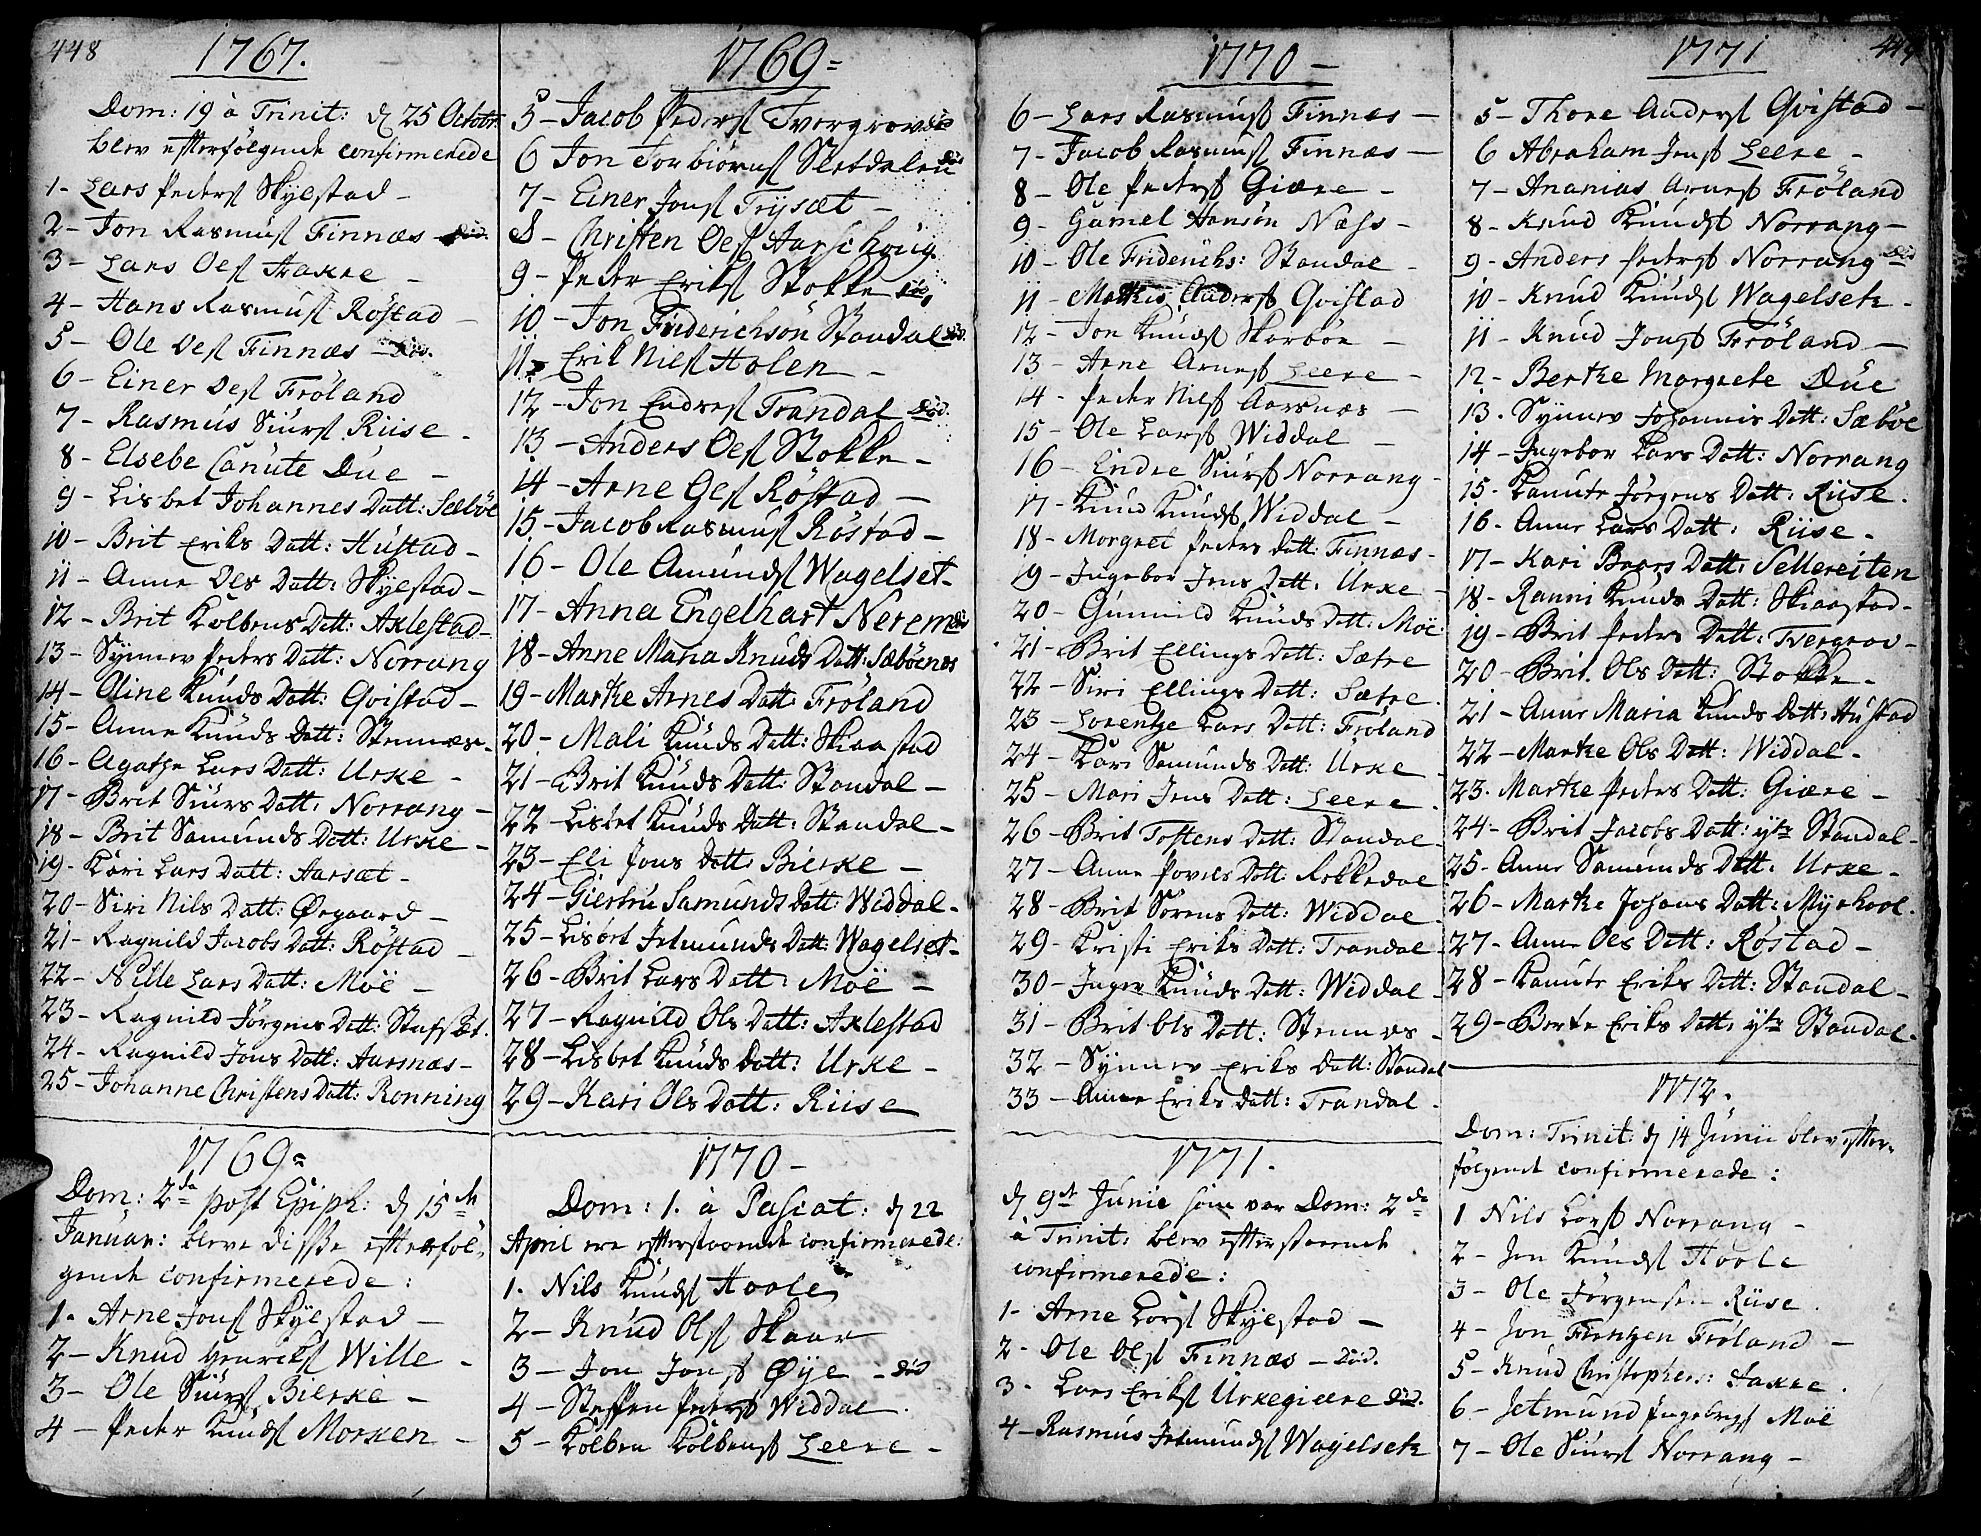 448
1767.
Dom: 19 à Trinit: d 25 Octobr:
blev efterfölgende confirmerede
1- Lars Peders Skylstad -
2- Jon Rasmus Finnæs - död.
3- Lars Oes Haxre -
4- Hans Rasmus Röstad -
5- Ole Oes Finnæs - död.
6- Einer Oes Fröland
7- Rasmus Siurs Riise -
8- Elsebe Canute Due -
9- Lisbet Johannes Datt: Sæböe
10- Brit Eriks Datt: Hustad -
11- Anne Ols Datt: Skylstad -
12- Brit Kolbens Datt: Axlestad -
13- Synnev Peders Datt: Norrang
14- Oline Knuds Datt: Qvistad -
15- Anne Knuds Datt: Stennæs -
16- Agathe Lars Datt: Urke -
17- Brit Siurs Datt: Norrang -
18- Brit Samunds Datt: Urke -
19- Kari Lars Datt: Aarsæt -
20- Siri Nils Datt: Øegaard -
21- Ragnild Jacobs Datt: Röstad -
22- Nille Lars Datt: Möe -
23- Ragnild Jörgens Datt: Stafsæt.
24- Ragnild Jons Datt: Aarsnæs -
25- Johanne Christens Datt: Ronning
1769=
Dom: 2da post Epiph: d 15de
Januar: bleve disse efterföl-
gende confirmerede:
1. Arne Jons Skylstad -
2- Knud Henricks Wille -
3- Ole Siurs Bierke -
4- Peder Knuds Morken -
1769=
5- Jacob Peders Tvergrov död
6 Jon Torbiörns Sletdalen död
7- Einer Jons Trysæt -
8- Christen Oes Aarschoug
9- Peder Eriks Stokke död,
10- Jon Friderichsön Standal död.
11- Erik Nils Holen -
12- Jon Endres Trandal död.
13- Anders Oes Stokke -
14- Arne Oes Röstad -
15- Jacob Rasmus Röstad -
16- Ole Amunds Wagelset -
17- Anna Engelhart Nerem
18- Anne Maria Knuds Datt: Sæböenes
19- Marke Arnes Datt: Fröland
20- Mali Knuds Datt: Skaastad
21- Brit Knuds Datt: Standal -
22- Lisbet Knuds Datt: Standal -
23- Eli Jons Datt: Bierke -
24- Giertru Samunds Datt: Widdal -
25- Lisbet Jetmunds Datt: Wagelset -
26- Brit Lars Datt: Möe -
27- Ragnild Ols Datt: Axlestad
28- Lisbet Knuds Datt: Urke -
29- Kari Ols Datt: Riise
1770-
Dom: 1. à Pascat: d 22
April ere efterstaaende confirmerede:
1. Nils Knuds Hoole
2- Knud Ols Skaar
3- Jon Jons Øye - död
4- Steffen Peders Widdal
5- Kolben Kolbens Leere -
1770-
6- Lars Rasmus Finnæs -
7- Jacob Rasmus Finnæs -
8- Ole Peders Giære -
9- Gumel Hansön Næss -
10- Ole Friderichs: Standal -
11- Anders Qvistad
12- Jon Knuds Skorböe -
13- Arne Arnes Leere -
14- Peder Nils Aarsnæs -
15- Ole Lars Widdal -
16- Endre Siurs Norrang -
17- Knud Knuds Widdal -
18- Morgret Peders Datt: Finnæs -
19- Ingebor Jens Datt: Urke -
20- Gunnild Knuds Datt: Möe:
21- Brit Ellings Datt: Sætre
22- Siri Ellings Datt: Sætre.
23- Lorentze Lars Datt: Fröland
24- Kari Samunds Datt: Urke -
25- Mari Jens Datt: Leere.
26- Brit Tostens Datt: Standal -
27- Anne Povels Datt: Rekkedal
28- Brit Sörens Datt: Widdal -
29- Kristi Eriks Datt: Trandal -
30- Inger Knuds Datt: Widdal -
31- Brit Ols Datt: Stennes -
32- Synnev Eriks Datt: Standal
33- Anne Eriks Datt: Trandal.
1771.
d 9de Junii som var Dom: 2da
à Trinit: blev efterstaaende
confirmerede:
1- Arne Lars Skylstad -
2- Ole Ols Finnæs - död.
3- Lars Eriks Urkegiære död.
4- Rasmus Jetmunds Wagelsetr
1771
449
5- Thore Anders Qvistad -
6 Abraham Jens Leere -
7- Ananias Arnes Fröland
8- Knud Knuds Norrang -
9- Anders Peders Norrang död
10- Knud Knuds Wagelsetr -
11- Knud Jons Fröland -
12- Berthe Morgrete Due
13. Synnev Johannis Datt: Sæböe
14- Ingebor Lars Datt: Norrang
15- Kanute Jörgens Datt: Riise.
16- Anne Lars Datt: Riise -
17- Kari Brars Datt: Sellereiten
18- Ranni Knuds Datt: Skaastad -
19- Brit Peders Datt: Tvergrov -
20- Brit Ols Datt: Stokke -
21- Anne Maria Knuds Datt: Hustad
22- Marke Ols Datt: Widdal -
23. Marke Peders Datt: Giære -
24- Brit Jacobs Datt: ytr Standal -
25- Anne Samunds Datt: Urke -
26- Marke Johans Datt: Myrhool.
27- Anne Ols Datt: Röstad -
28- Kanute Eriks Datt: Standal -
29- Berte Eriks Datt: ytr Standal.
1772.
Dom: Trinit: d 14 Junii blev efter-
fölgende confirmerede:
1 Nils Lars Norrang -
2- Jon Knuds Hoole
3- Ole Jörgens - Riise.
4- Jon Frentzen Fröland -
5- Knud Christophers: Haxre.
6- Jetmund Ingebrigs Möe
7- Ole Siurs Norrang -